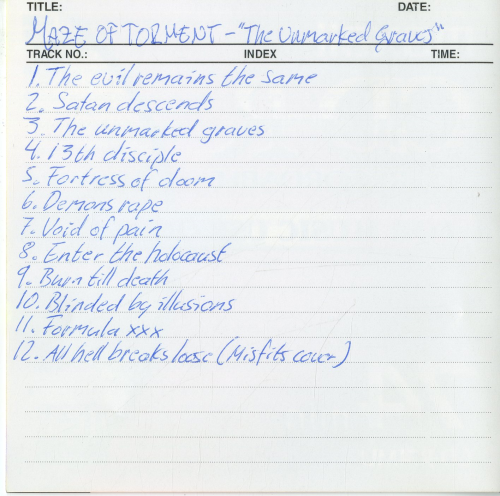 TITLE: DATE:
MAZE OF TORMENT - "The Unmarked Graves"
TRACK NO.: INDEX TIME:
1. The evil remains the same
2. Satan descends
3. The unmarked graves
4. 13th disciple
5. Fortress of doom
6. Demons rape
7. Void of pain
8. Enter the holocaust
9. Burn till death
10. Blinded by illusions
11. Formula xxx
12. All hell breaks loose (Misfits cover)